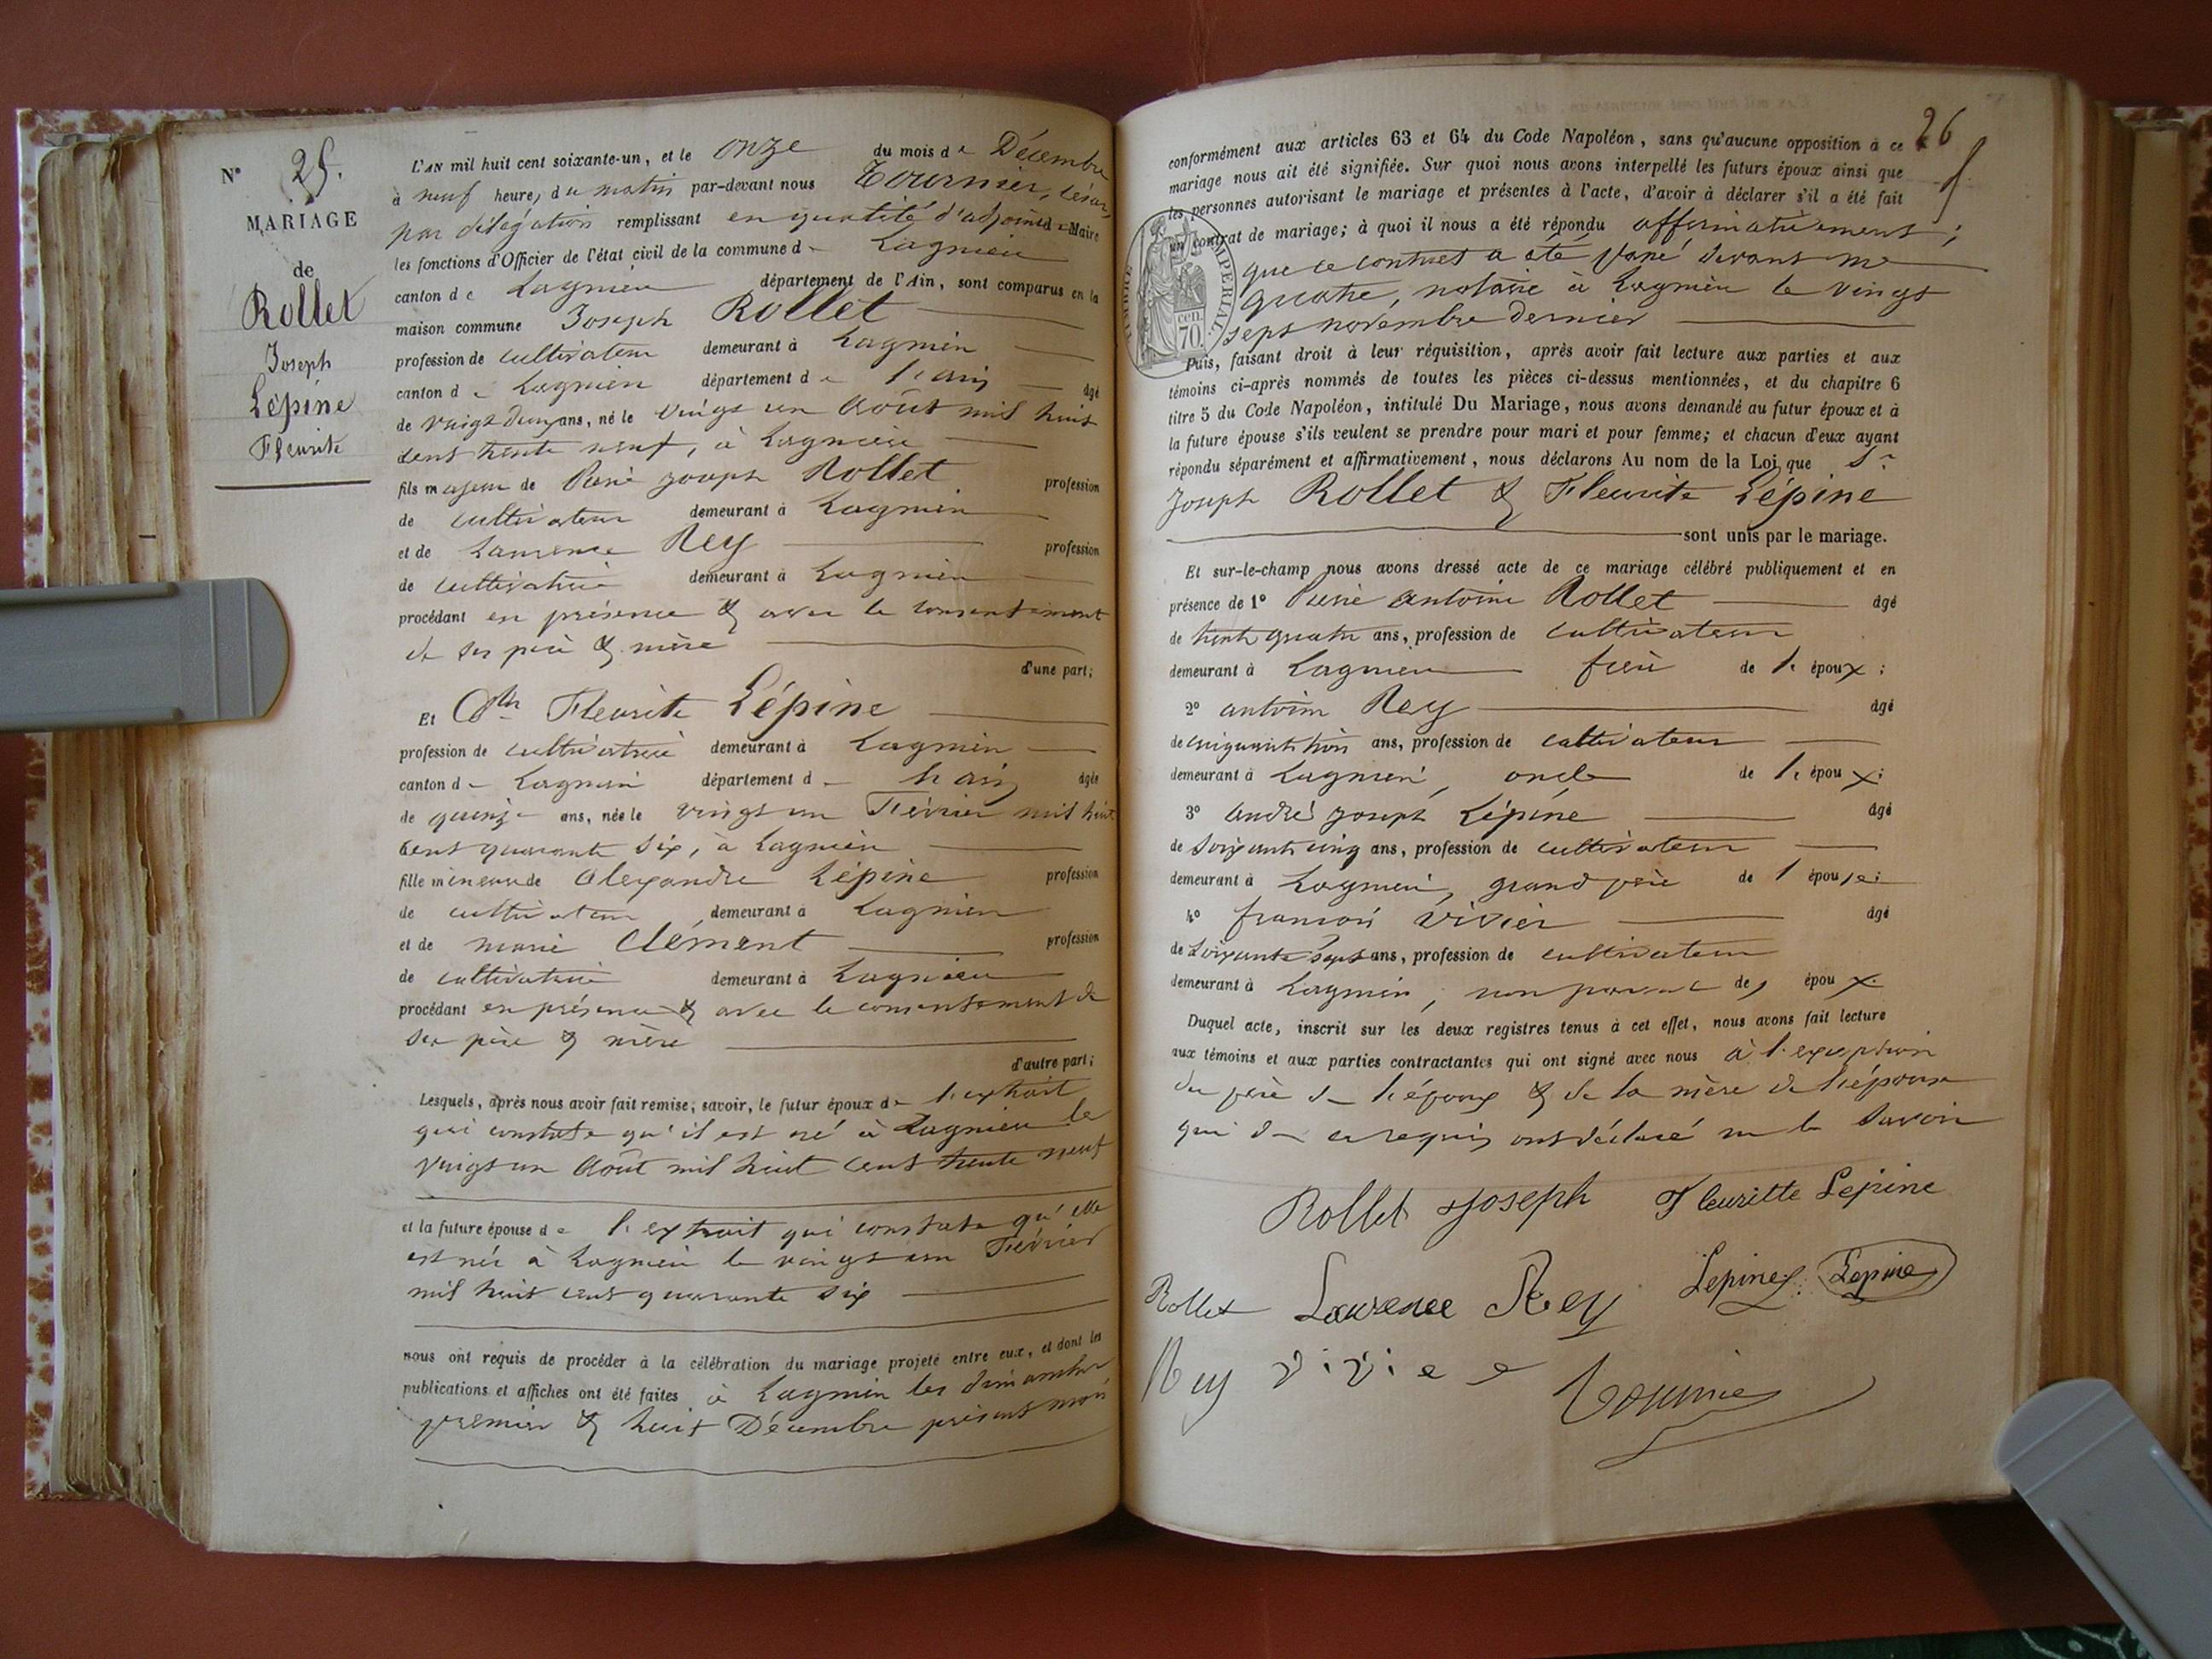 N° 25.
MARIAGE
de
Rollet
Joseph
Lépine
Fleurite
L'AN mil huit cent soixante-un, et le onze du mois de Décembre
à neuf heure, du matin par-devant nous Tournier, César,
par délégation remplissant en qualité d'adjoint de Maire
les fonctions d'Officier de l'état civil de la commune de Lagnieu
canton de Lagnieu département de l'Ain, sont comparus en la
maison commune Joseph Rollet
profession de cultivateur demeurant à Lagnieu
canton de Lagnieu département de l'ain âgé
de vingt deux ans, né le vingt un Août mil huit
cent trente neuf, à Lagnieu
fils majeur de Pierre joseph Rollet profession
de cultivateur demeurant à Lagnieu
et de Laurence Rey profession
de cultivatrice demeurant à Lagnieu
procédant en présence & avec le consentement
de ses père & mère
d'une part;
Et Dlle Fleurite Lépine
profession de cultivatrice demeurant à Lagnieu
canton de Lagnieu département de l'ain âgée
de quinze ans, née le vingt un Février mil huit
cent quarante six, à Lagnieu
fille mineure de Alexandre Lépine profession
de cultivateur demeurant à Lagnieu
et de marie Clément profession
de cultivatrice demeurant à Lagnieu
procédant en présence & avec le consentement de
ses père & mère
d'autre part;
Lesquels, après nous avoir fait remise, savoir, le futur époux de l'extrait
qui constate qu'il est né à Lagnieu le
vingt un Août mil huit cent trente neuf
et la future épouse de l'extrait qui constate qu'elle
est née à Lagnieu le vingt un Février
mil huit cent quarante six
nous ont requis de procéder à la célébration du mariage projeté entre eux, et dont les
publications et affiches ont été faites à Lagnieu les dimanches
premier & huit Décembre présent mois
26
conformément aux articles 63 et 64 du Code Napoléon, sans qu'aucune opposition à ce
mariage nous ait été signifiée. Sur quoi nous avons interpellé les futurs époux ainsi que
les personnes autorisant le mariage et présentes à l'acte, d'avoir à déclarer s'il a été fait
un contrat de mariage; à quoi il nous a été répondu affirmativement;
que ce contrat a été passé devant me
quatre, notaire à Lagnieu le vingt
sept novembre dernier
TIMBRE IMPERIAL
70. cen.
Puis, faisant droit à leur réquisition, après avoir fait lecture aux parties et aux
témoins ci-après nommés de toutes les pièces ci-dessus mentionnées, et du chapitre 6
titre 5 du Code Napoléon, intitulé Du Mariage, nous avons demandé au futur époux et à
la future épouse s'ils veulent se prendre pour mari et pour femme; et chacun d'eux ayant
répondu séparément et affirmativement, nous déclarons Au nom de la Loi que Sr
Joseph Rollet & Fleurite Lépine
sont unis par le mariage.
Et sur-le-champ nous avons dressé acte de ce mariage célébré publiquement et en
présence de 1° Pierre antoine Rollet âgé
de trente quatre ans, profession de cultivateur
demeurant à Lagnieu frère de l'époux;
2° antoine Rey âgé
de cinquante trois ans, profession de cultivateur
demeurant à Lagnieu, oncle de l'époux;
3° andré joseph Lépine âgé
de soixante cinq ans, profession de cultivateur
demeurant à Lagnieu, grand père de l'épouse;
4° françois vivier âgé
de soixante sept ans, profession de cultivateur
demeurant à Lagnieu, non parent des époux.
Duquel acte, inscrit sur les deux registres tenus à cet effet, nous avons fait lecture
aux témoins et aux parties contractantes qui ont signé avec nous à l'exception
du père de l'époux & de la mère de l'épouse
qui de ce requis ont déclaré ne le savoir
Rollet Joseph Fleuritte Lepine
Rollet Laurence Rey Lepine Lepine
Rey vivier Tournier